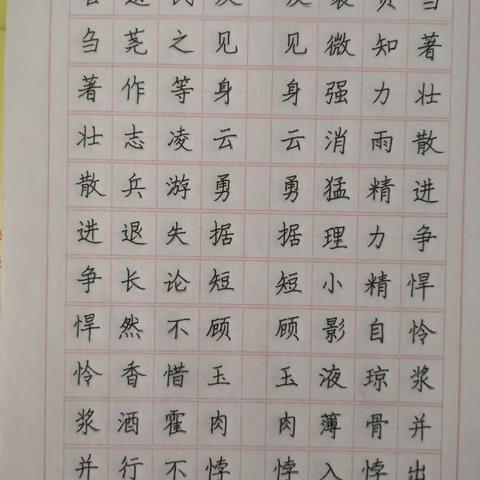 刍荛之见 见微知著
著作等身 身强力壮
壮志凌云 云消雨散
散兵游勇 勇猛精进
进退失据 据理力争
争长论短 短小精悍
悍然不顾 顾影自怜
怜香惜玉 玉液琼浆
浆酒霍肉 肉薄骨并
并行不悖 悖入悖出